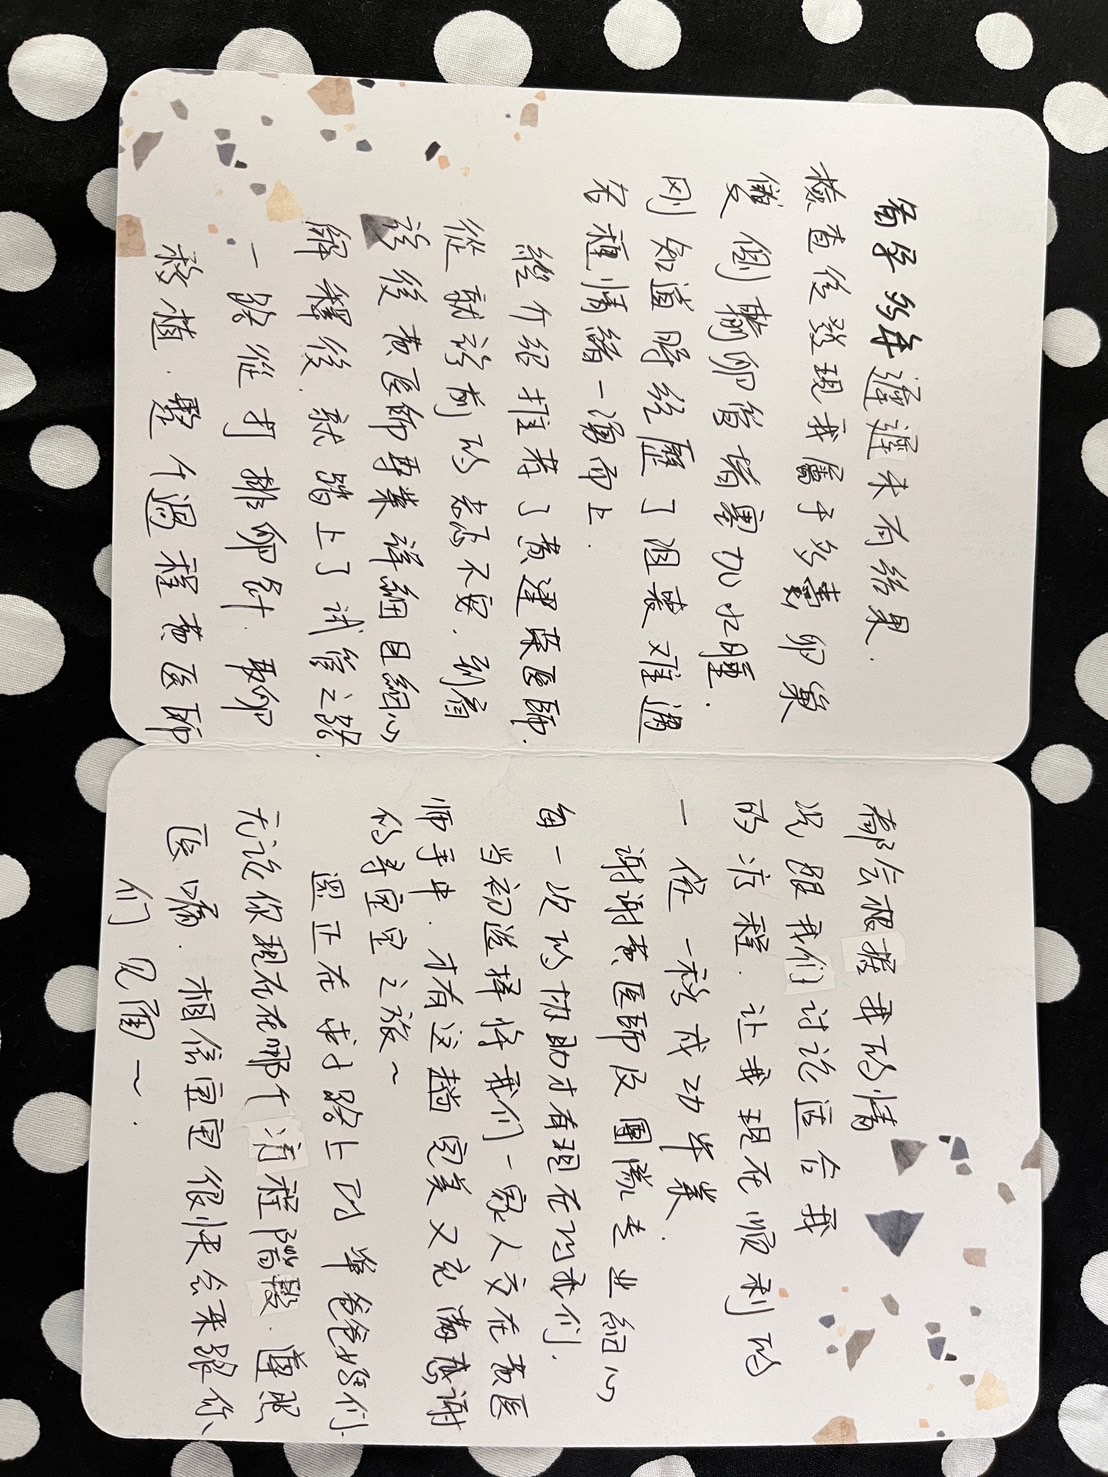 备孕多年遲遲未有结果.
檢查後發現我屬于多囊卵巢
雙侧輸卵管堵塞加水腫.
刚知道時经歷了沮喪难過
各種情緒一湧而上.
經介绍推荐了黄建荣医師.
從就诊前的忐忑不安.到看
诊後黄医師專業详細且細心
解釋後.就踏上了试管之路.
一路從打排卵針.取卵
移植.整个過程黄医師
都会根据我的情
况跟我们讨论适合我
的疗程.让我现在顺利的
一促一移成功毕業.
谢谢黄医師及團隊专业細心
每一次的协助才有现在的我们.
当初选择将我们一家人交在黄医
师手中.才有这趟完美又充滿感谢
的寻宝宝之旅~
還正在求子路上的準爸爸妈们.
无论你现在在哪个疗程階段.遵照
医嘱.相信宝宝很快会来跟你
们见面~.